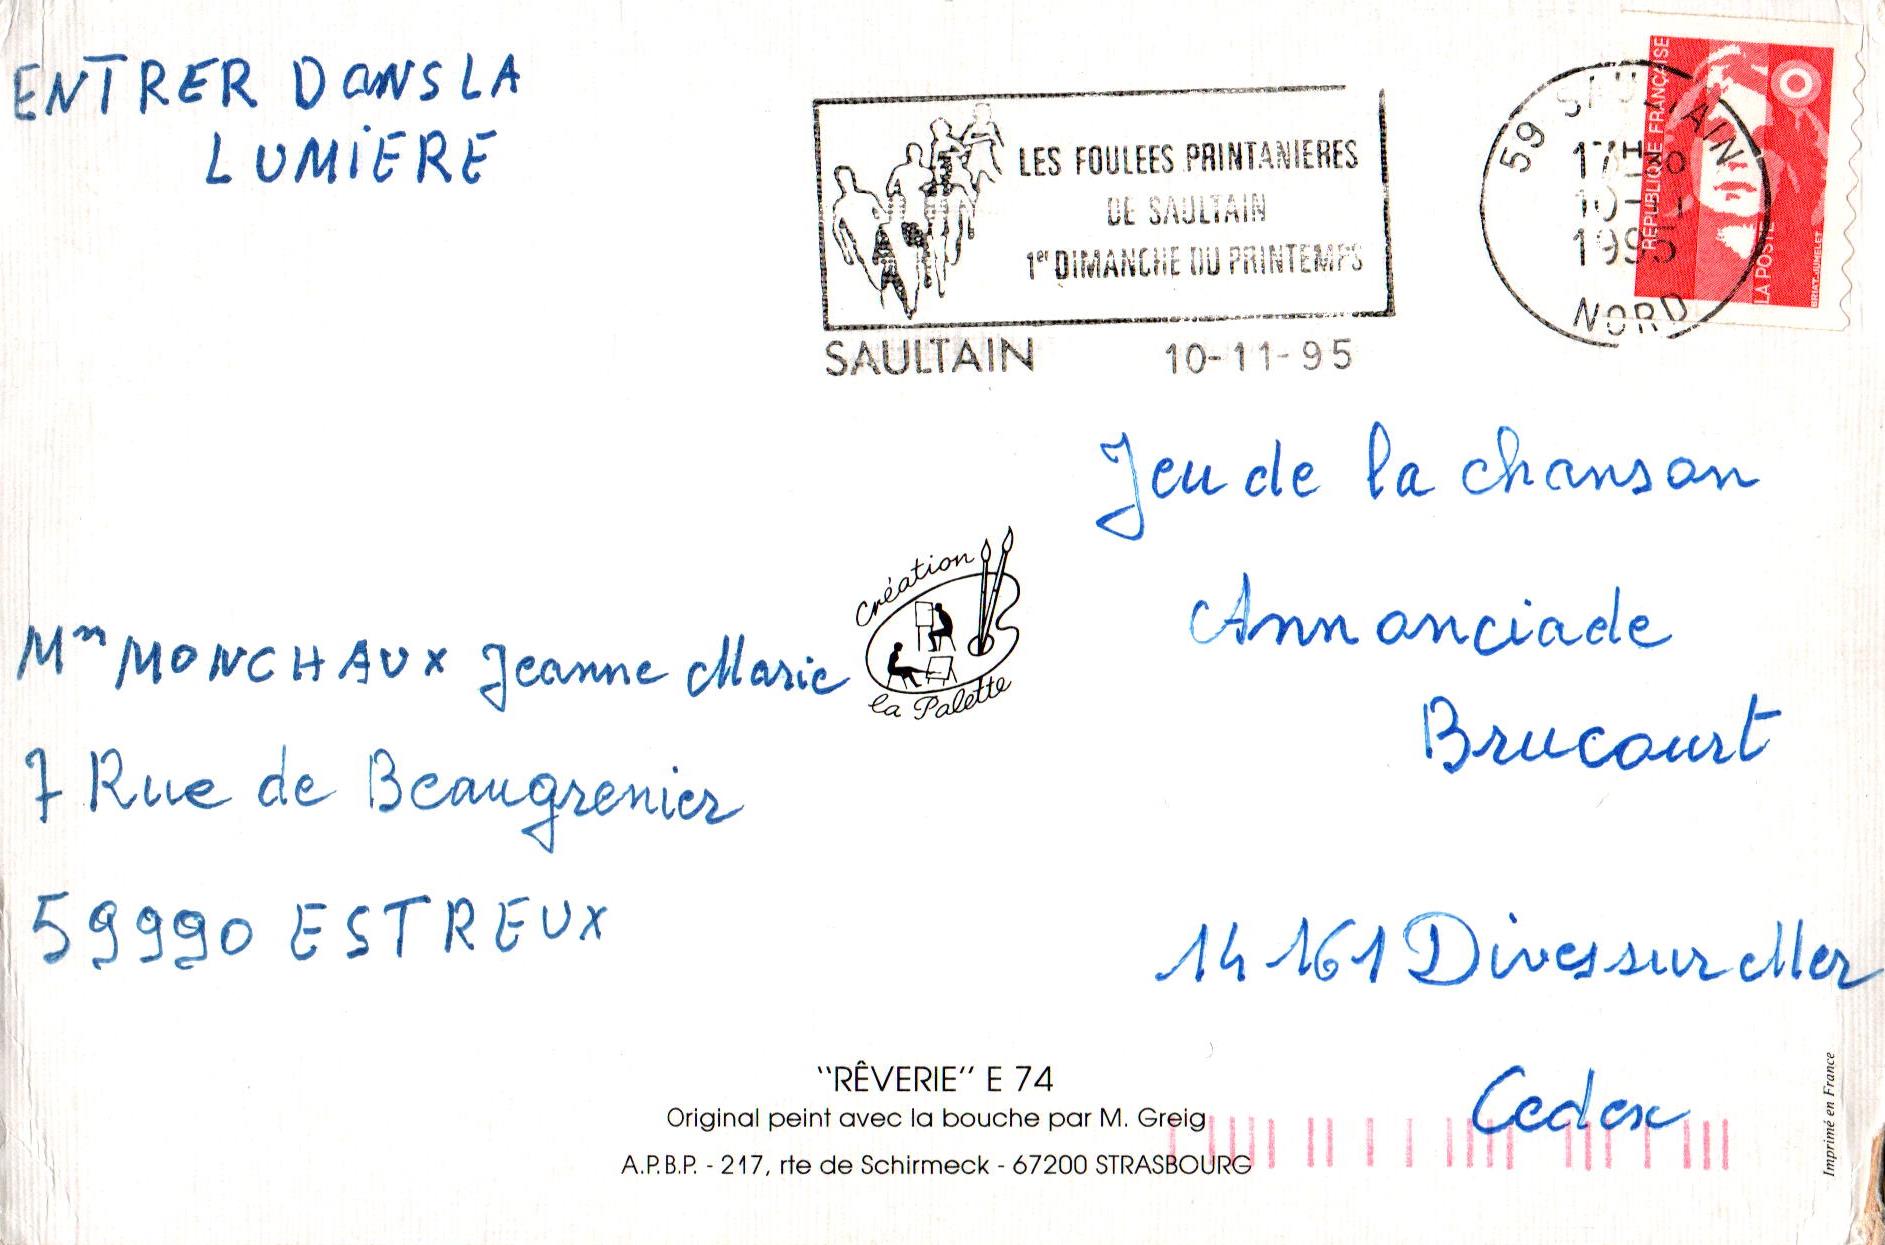 ENTRER DANS LA
LUMIERE
LES FOULEES PRINTANIERES
DE SAULTAIN
1er DIMANCHE DU PRINTEMPS
SAULTAIN 10-11-95
59 SAULTAIN
17H
10-11
1995
NORD
REPUBLIQUE FRANÇAISE
LA POSTE
BRIAT-JUMELET
Jeu de la chanson
Annonciade
Brucourt
14 161 Dives sur Mer
Cedex
Création
la Palette
Mm MONCHAUX Jeanne Marie
7 Rue de Beaugrenier
59990 ESTREUX
"RÊVERIE" E 74
Original peint avec la bouche par M. Greig
A.P.B.P. - 217, rte de Schirmeck - 67200 STRASBOURG
Imprimé en France